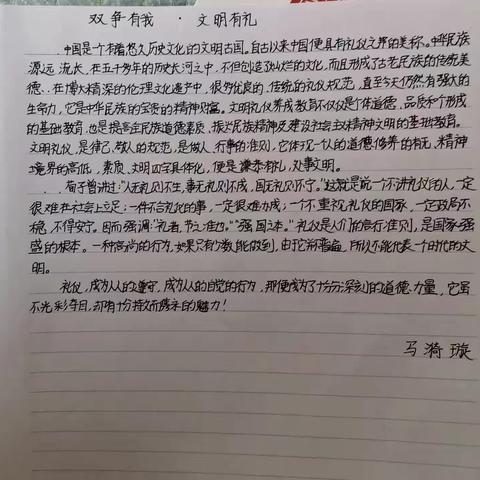 双争有我 · 文明有礼
中国是个有着悠久历史文化的文明古国。自古以来中国便具有礼仪之邦的美称。中华民族
源远流长，在五千多年的历史长河之中，不但创造了灿烂的文化，而且形成了古老民族的传统美
德。在博大精深的伦理文化遗产中，很多优良的，传统的礼仪规范，直至今天仍然有强大的
生命力，它是中华民族的宝贵的精神财富。文明礼仪养成教育不仅仅是个体道德、品质和个形成
的基础教育，也是提高全民族道德素质，振兴民族精神及建设社会主义精神文明的基础教育。
文明礼仪，是律己、敬人的规范，是做人、行事的准则，它体现一个人的道德修养的有无，精神
境界的高低，素质、文明四字具体化，便是谦恭有礼，处事文明。
荀子曾讲过:"人无礼则不生，事无礼则不成，国无礼则不宁。"这就是说一个不讲礼仪的人，一定
很难在社会上立足；一件不合礼仪的事，一定很难办成；一个不重视礼仪的国家，一定政局不
稳，不得安宁。因而强调"礼者，节之准也。""强国之本。"礼仪是人们的言行准则，是国家强
盛的根本。一种高尚的行为，如果只有少数能做到，由于不普遍，所以不能代表一个时代的文
明。
礼仪，成为人的遵守，成为人的自觉的行为，那便成为了十分深刻的道德力量，它虽
不光彩夺目，却有十分持效而隽永的魅力！
马漪璇